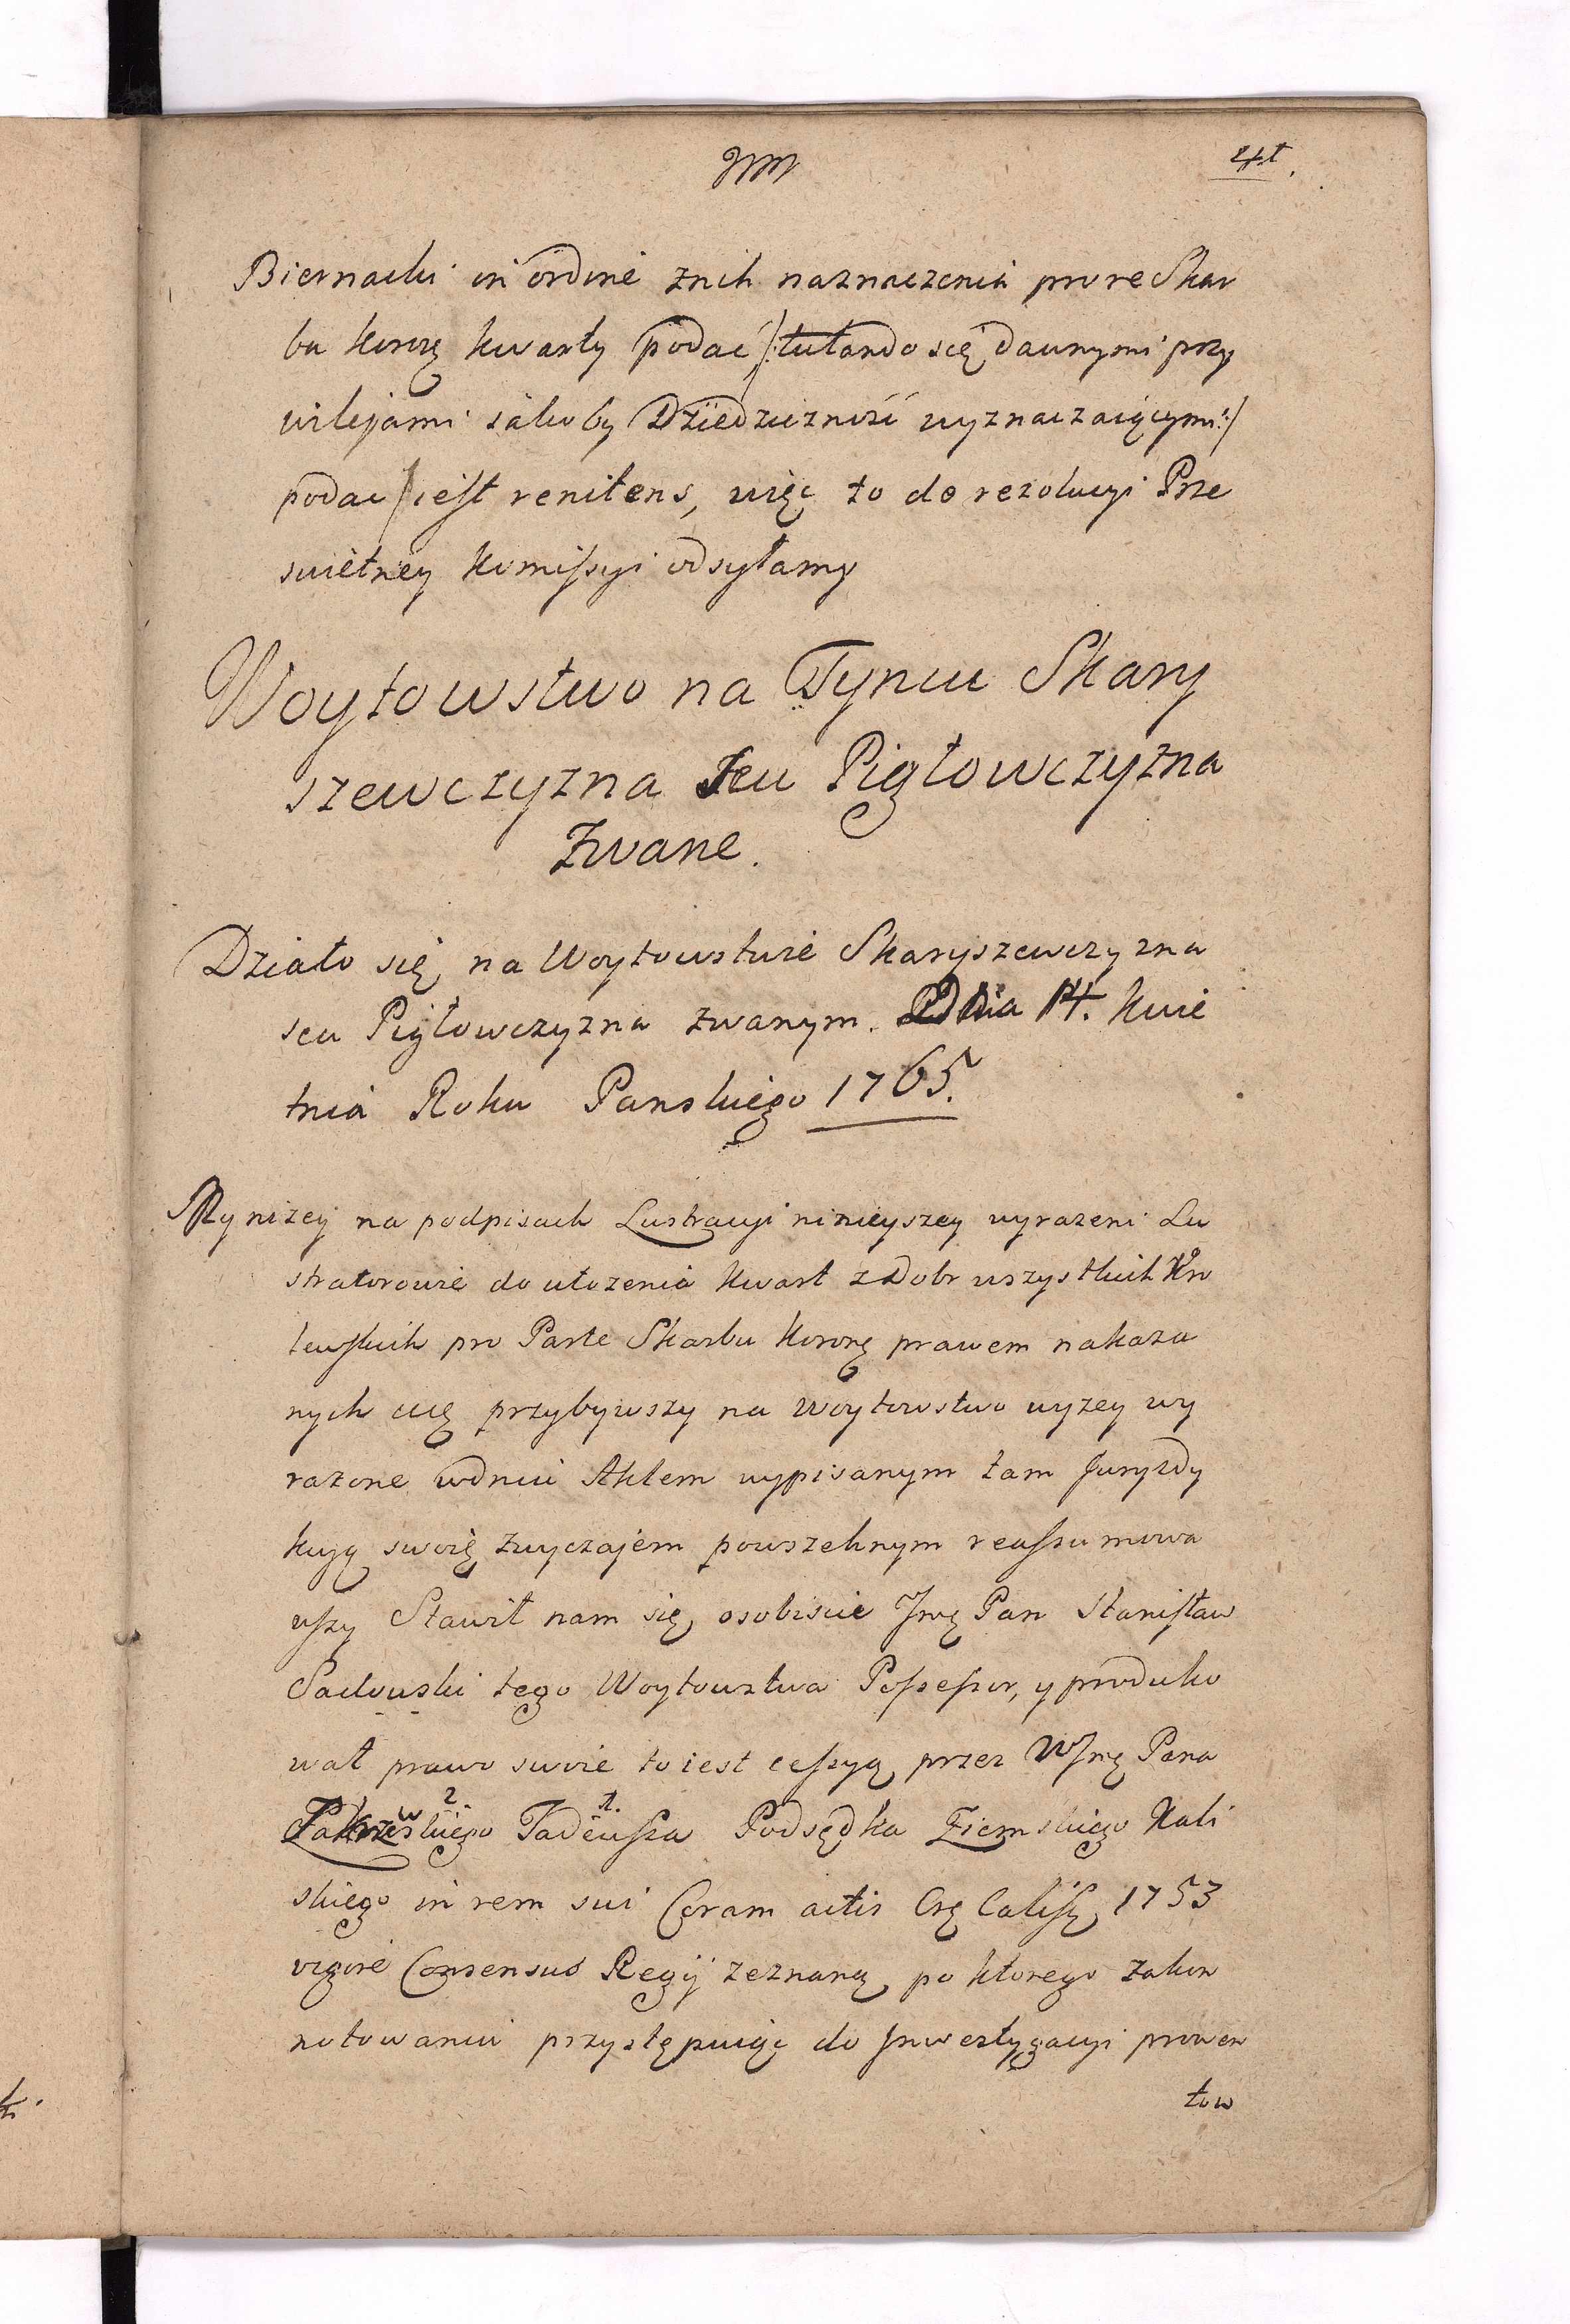 41.
Biernacki in ordine znich naznaczenia pro re Skar
bu koronę kwarty podac /: tutando się dawnymi przy
wilejami iakoby Dziedziczność wyznaczaiącymi :/
podac iest renitens, więc to do rezolucyi Prze
swietney Komissyi odsyłamy
Woytowstwo na Tyncu Skary
szewczyzna Seu Piątowczyzna
Zwane.
Działo się na Woytowstwie Skaryszewczyzna
seu Piątowczyzna zwanym. Dnia 14. Kwie
tnia Roku Panskiego 1765.
My nizey na podpisach Lustracyi ninieyszey wyrazeni Lu
stratorowie do ułozenia kwart z Dobr wszystkich Kro
lewskich pro Parte Skarbu Koronę prawem nakaza
nych przybywszy na Woytowstwo wyzey wy
razone w dniu Aktem wypisanym tam Juryzdy
kcyą swoię zwyczajem powszehnym reassumowa
wszy Stawił nam się osobiscie Jmę Pan Stanisław
Sadowski tego Woytowstwa Possessor, y produko
wał prawo swoie to iest cessyą przez WJmę Pana
Zakrzewskiego Tadeusza Podsędka Ziemskiego Kali
skiego in rem sui Coram actis Crę Calisę 1753
vigore Consensus Regij zeznaną, po ktorego zakon
notowaniu przystępuiąc do Jnwestygacyi prowen
tow